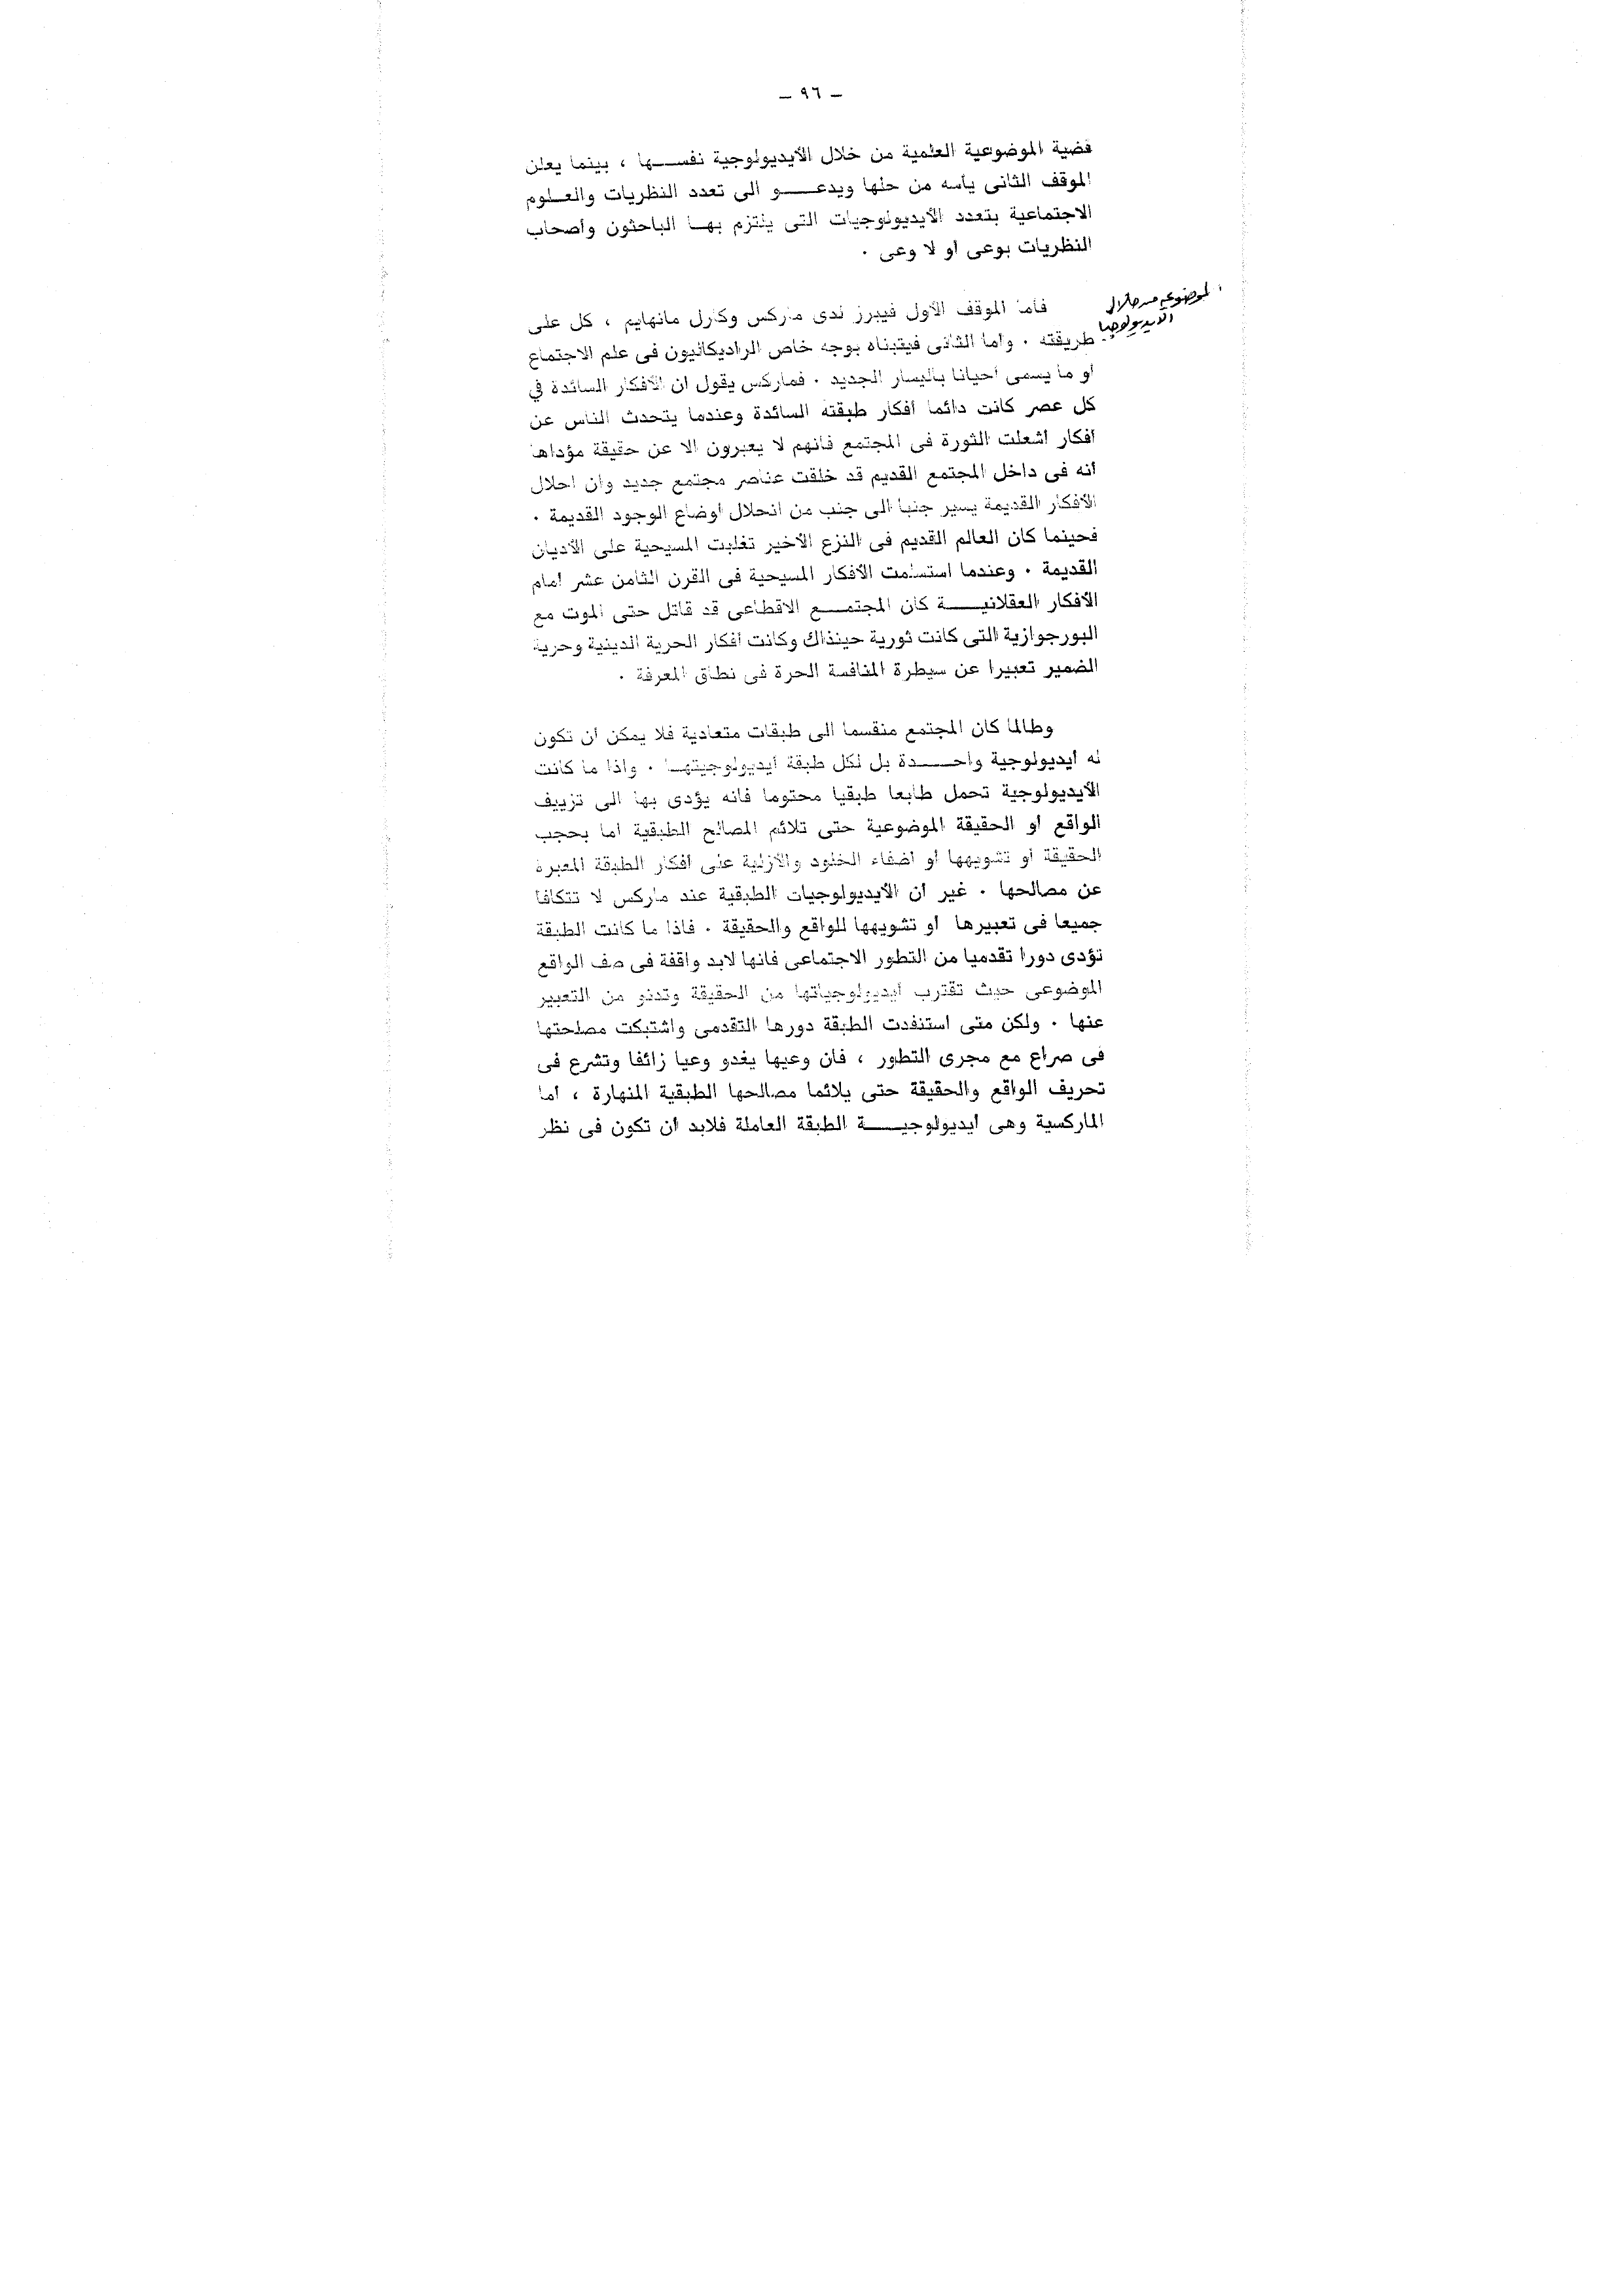 – ٩٦ –
قضية الموضوعية العلمية من خلال الأيديولوجية نفسها ، بينما يعلن
الموقف الثانى يأسه من حلها ويدعو الى تعدد النظريات والعلوم
الاجتماعية بتعدد الأيديولوجيات التى يلتزم بها الباحثون وأصحاب
النظريات بوعى أو لا وعى .
الموضوعية من خلال
الايديولوجيا
فأما الموقف الأول فيبرز لدى ماركس وكارل مانهايم ، كل على
طريقته . وأما الثانى فيتبناه بوجه خاص الراديكاليون فى علم الاجتماع
أو ما يسمى أحيانا باليسار الجديد . فماركس يقول ان الأفكار السائدة في
كل عصر كانت دائما أفكار طبقته السائدة وعندما يتحدث الناس عن
أفكار أشعلت الثورة فى المجتمع فانهم لا يعبرون الا عن حقيقة مؤداها
أنه فى داخل المجتمع القديم قد خلقت عناصر مجتمع جديد وان احلال
الأفكار القديمة يسير جنبا الى جنب من انحلال أوضاع الوجود القديمة .
فحينما كان العالم القديم فى النزع الأخير تغلبت المسيحية على الأديان
القديمة . وعندما استسلمت الأفكار المسيحية فى القرن الثامن عشر أمام
الأفكار العقلانية كان المجتمع الاقطاعى قد قاتل حتى الموت مع
البورجوازية التى كانت ثورية حينذاك وكانت أفكار الحرية الدينية وحرية
الضمير تعبيرا عن سيطرة المنافسة الحرة فى نطاق المعرفة .
وطالما كان المجتمع منقسما الى طبقات متعادية فلا يمكن أن تكون
له أيديولوجية واحدة بل لكل طبقة أيديولوجيتها . واذا ما كانت
الأيديولوجية تحمل طابعا طبقيا محتوما فانه يؤدى بها الى تزييف
الواقع أو الحقيقة الموضوعية حتى تلائم المصالح الطبقية أما بحجب
الحقيقة أو تشويهها أو اضفاء الخلود والأزلية على أفكار الطبقة المعبرة
عن مصالحها . غير أن الأيديولوجيات الطبقية عند ماركس لا تتكافأ
جميعا فى تعبيرها أو تشويهها للواقع والحقيقة . فاذا ما كانت الطبقة
تؤدى دورا تقدميا من التطور الاجتماعى فانها لابد واقفة فى صف الواقع
الموضوعى حيث تقترب أيديولوجياتها من الحقيقة وتدنو من التعبير
عنها . ولكن متى استنفدت الطبقة دورها التقدمى واشتبكت مصلحتها
فى صراع مع مجرى التطور ، فان وعيها يغدو وعيا زائفا وتشرع فى
تحريف الواقع والحقيقة حتى يلائما مصالحها الطبقية المنهارة ، أما
الماركسية وهى أيديولوجية الطبقة العاملة فلابد أن تكون فى نظر